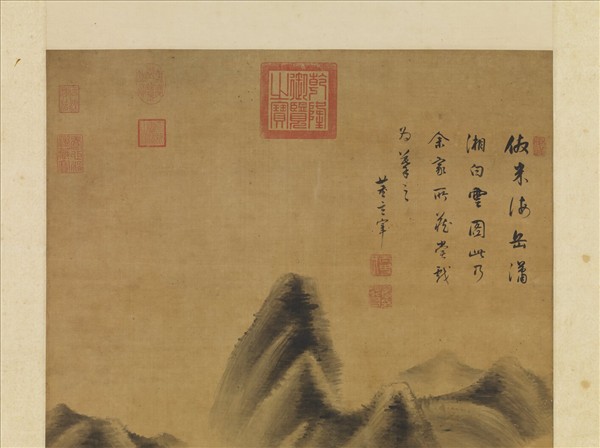 倣米海岳瀟
湘白雲圖此乃
余家所藏嘗戲
為摹之
董玄宰
乾隆
御覽
之寶